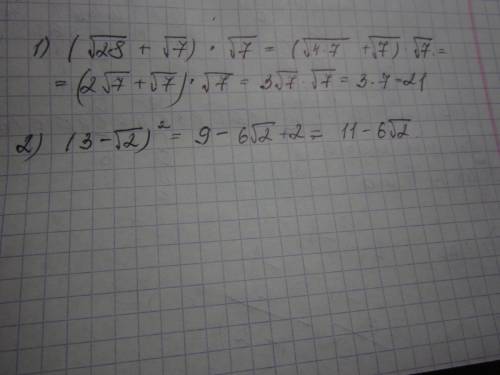 1) (√28 + √7) · √7 = (√4·7 + √7) · √7 =
= (2√7 + √7) · √7 = 3√7 · √7 = 3·7=21
2) (3 - √2)² = 9 - 6√2 + 2 = 11 - 6√2